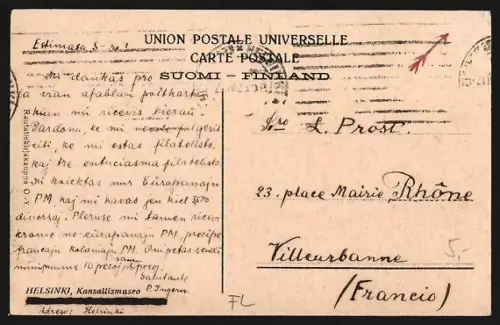 UNION POSTALE UNIVERSELLE
CARTE POSTALE
SUOMI - FINLAND
Estimata S-ro!
Mi dankas pro
la vian afablan poŝtkarton
kiun mi ricevis hieraŭ.
Pardonu, ke mi
ke mi estas filatelisto
kaj tre entuziasma filatelisto.
Mi kolektas nur Eŭropanajn
PM, kaj mi havas jen kiel 3500
diversaj. Plezure mi tamen ricevos
krome ne-eŭropanajn PM, precipe
francajn koloniajn PM. Oni petas sendi
minimume 10 pecoj
Samtante
P. Ingervo
HELSINKI, Kansallismuseo
Adreso: Helsinki
Rautatiekirjakauppa O.Y.
S-ro L. Prost.
23. place Mairie Rhône
Villeurbanne
(Francio)
5,-
FL